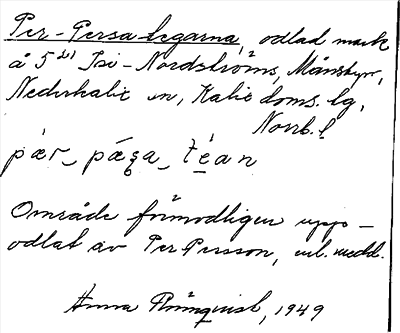 Per-Persa-tegarna, odlad mark
å 5 Isi-Nordströms, Månsbyn,
Nederkalix sn, Kalix doms. tg,
Norrb. l
pær_ pæsa_ téan
Område förmodligen upp-
odlat av Per Persson, enl. medd.
Anna Rönnquist, 1949